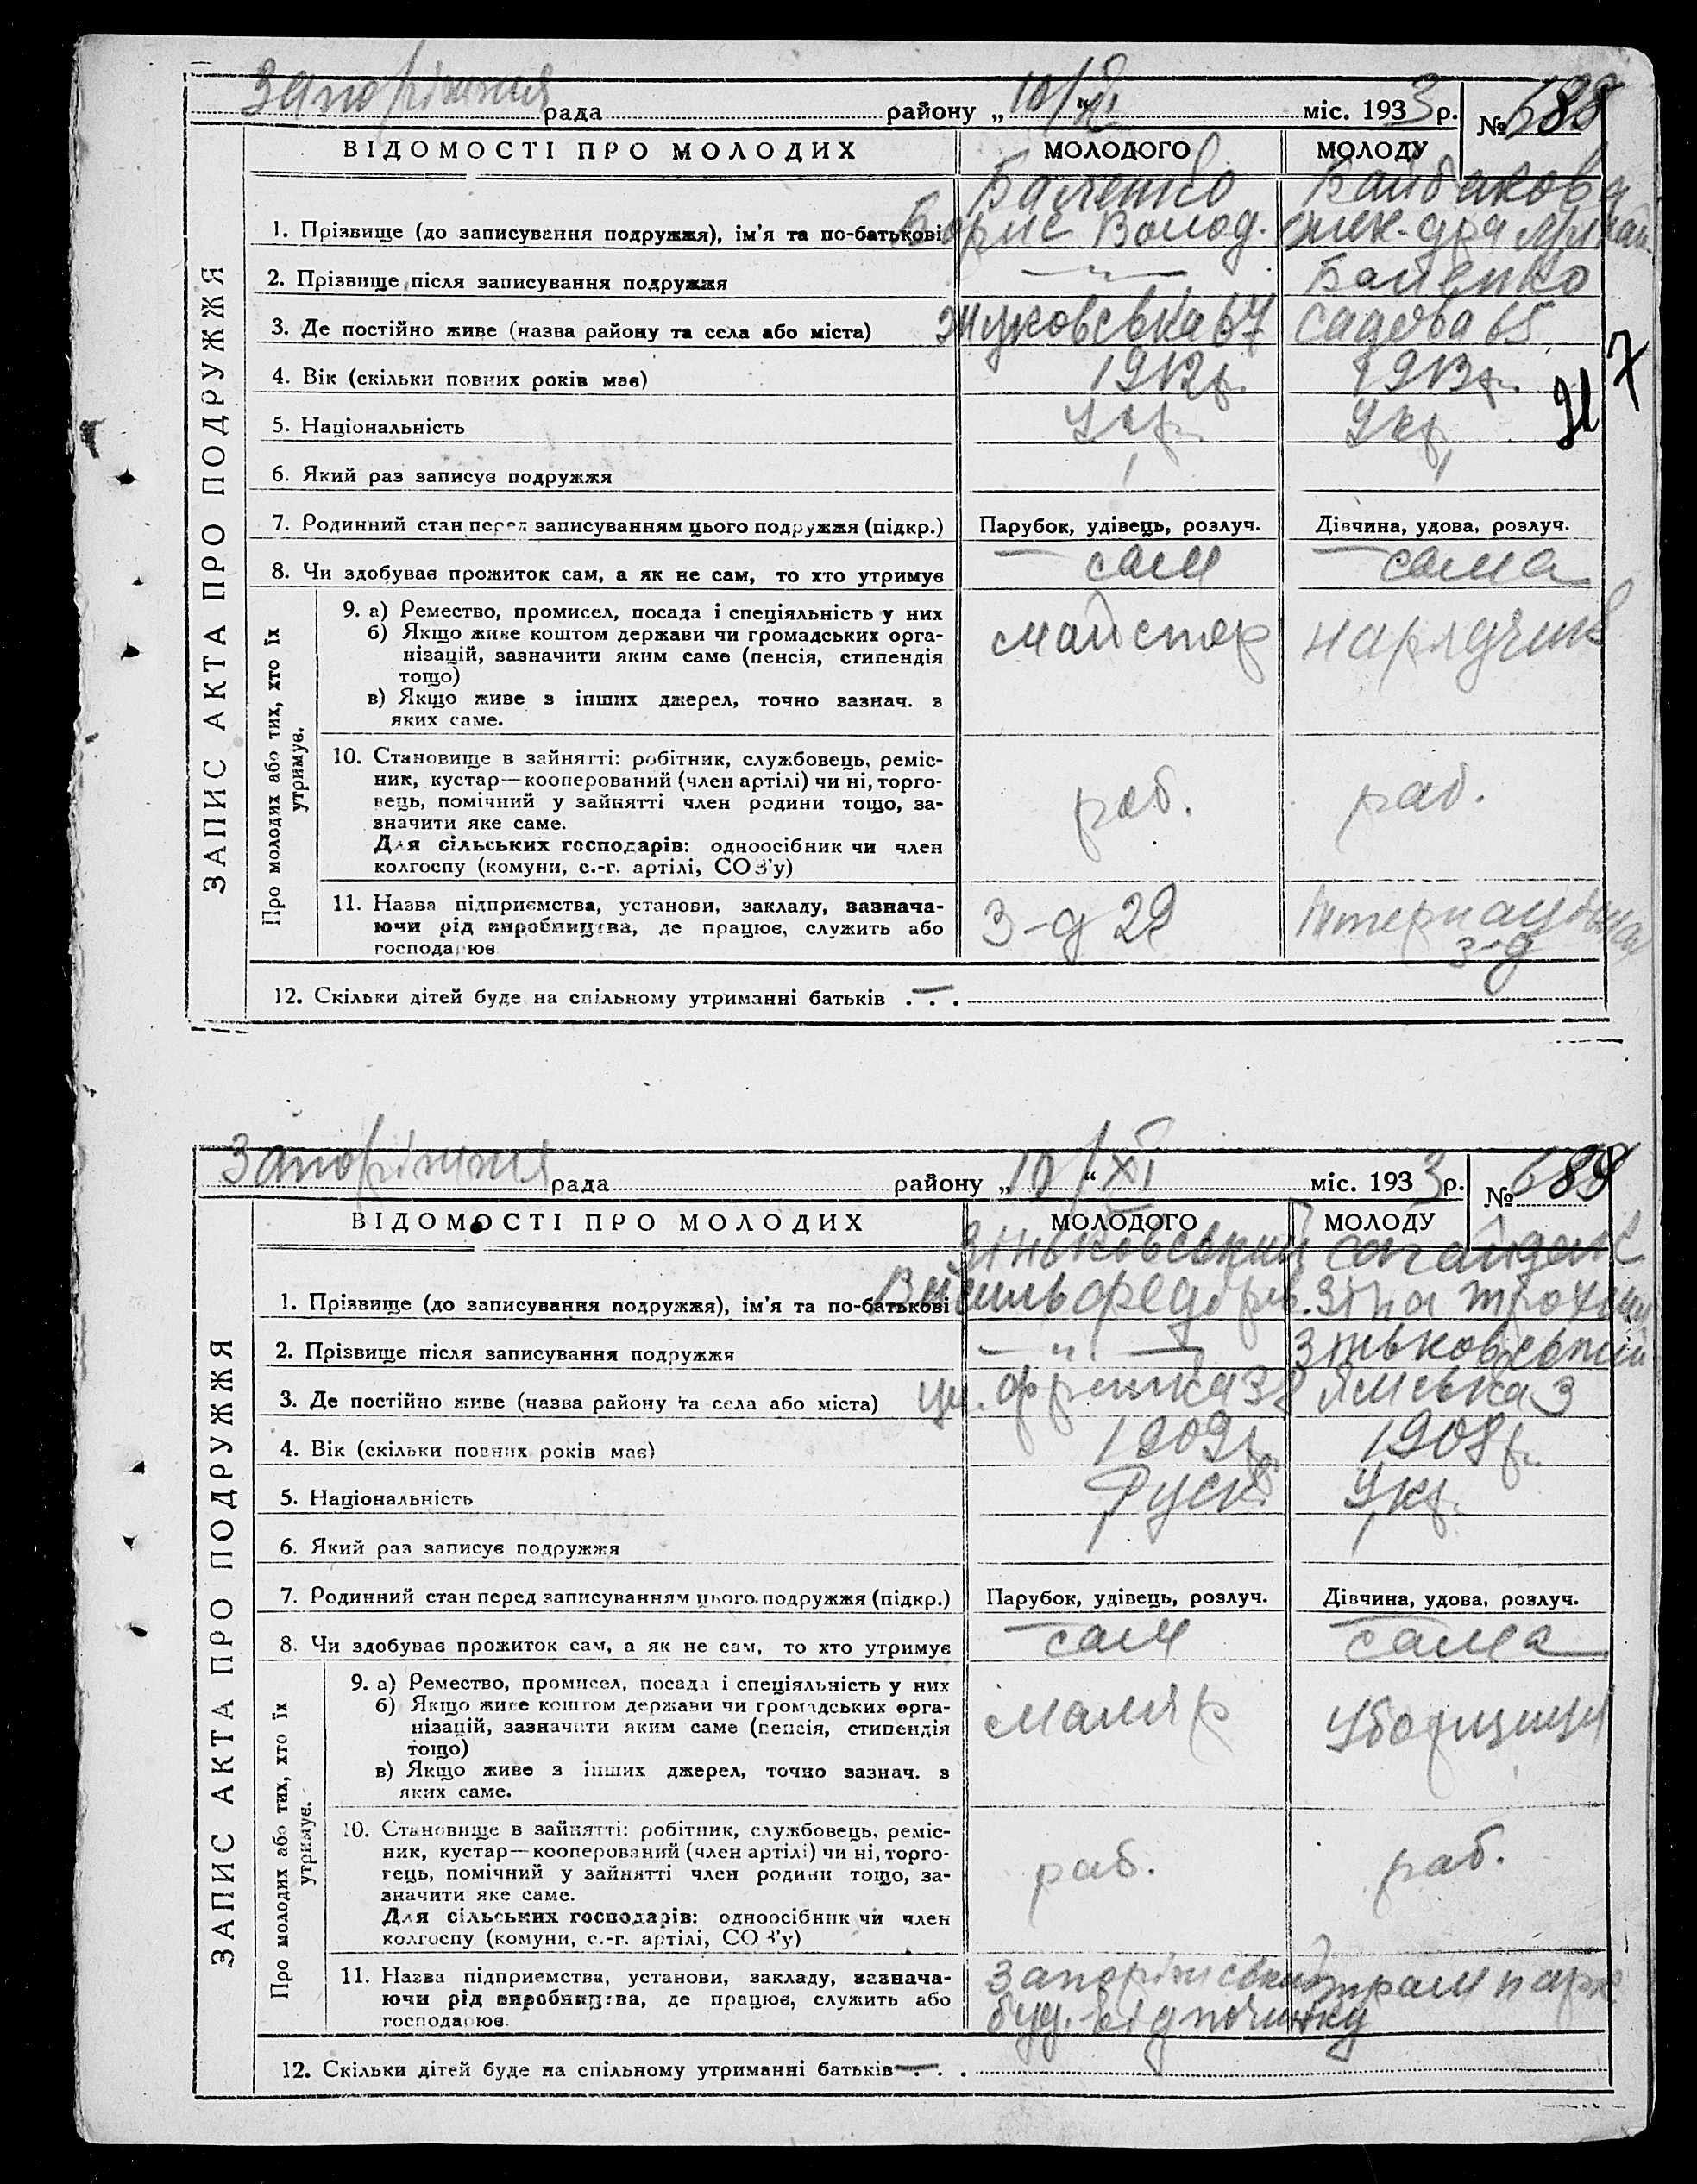 Запоріжжя рада району „10/XI“ міс. 1933 р. № 688
ВІДОМОСТІ ПРО МОЛОДИХ МОЛОДОГО МОЛОДУ
ЗАПИС АКТА ПРО ПОДРУЖЖЯ
Байбакова
1. Прізвище (до записування подружжя), ім'я та по-батькові Борис Волод.
2. Прізвище після записування подружжя — „ —
3. Де постійно живе (назва району та села або міста) Жуковська 67 Садова 65
4. Вік (скільки повних років має) 1912 р. 1913 р.
5. Національність Укр. Укр.
6. Який раз записує подружжя 1 1
7. Родинний стан перед записуванням цього подружжя (підкр.) Парубок, удівець, розлуч. Дівчина, удова, розлуч.
8. Чи здобуває прожиток сам, а як не сам, то хто утримує сам сама
Про молодих або тих, хто їх утримує.
9. а) Ремество, промисел, посада і спеціяльність у них майстер нарядчик
б) Якщо живе коштом держави чи громадських орга-
нізацій, зазначити яким саме (пенсія, стипендія
тощо)
в) Якщо живе з інших джерел, точно зазнач. з
яких саме.
10. Становище в зайнятті: робітник, службовець, реміс-
ник, кустар—кооперований (член артілі) чи ні, торго-
вець, помічний у зайнятті член родини тощо, за-
значити яке саме. раб. раб.
Для сільських господарів: одноосібник чи член
колгоспу (комуни, с.-г. артілі, СОЗ'у)
11. Назва підприємства, установи, закладу, зазнача-
ючи рід виробництва, де працює, служить або З-д 29
господарює з-д
12. Скільки дітей буде на спільному утриманні батьків . — .
И 7
Запоріжжя рада району „10/XI“ міс. 1933 р. № 689
ВІДОМОСТІ ПРО МОЛОДИХ МОЛОДОГО МОЛОДУ
ЗАПИС АКТА ПРО ПОДРУЖЖЯ
Зіньковський Сагайдак
1. Прізвище (до записування подружжя), ім'я та по-батькові Василь Федоров. Зіна
2. Прізвище після записування подружжя — „ —
3. Де постійно живе (назва району та села або міста) Ямська 3
4. Вік (скільки повних років має) 1909 р. 1908 р.
5. Національність Руск. Укр.
6. Який раз записує подружжя 1 1
7. Родинний стан перед записуванням цього подружжя (підкр.) Парубок, удівець, розлуч. Дівчина, удова, розлуч.
8. Чи здобуває прожиток сам, а як не сам, то хто утримує сам сама
Про молодих або тих, хто їх утримує.
9. а) Ремество, промисел, посада і спеціяльність у них маляр уборщиця
б) Якщо живе коштом держави чи громадських орга-
нізацій, зазначити яким саме (пенсія, стипендія
тощо)
в) Якщо живе з інших джерел, точно зазнач. з
яких саме.
10. Становище в зайнятті: робітник, службовець, реміс-
ник, кустар—кооперований (член артілі) чи ні, торго-
вець, помічний у зайнятті член родини тощо, за-
значити яке саме. раб. раб.
Для сільських господарів: одноосібник чи член
колгоспу (комуни, с.-г. артілі, СОЗ'у)
11. Назва підприємства, установи, закладу, зазнача- Запоріжський трампарк
ючи рід виробництва, де працює, служить або буд. відпочинку
господарює.
12. Скільки дітей буде на спільному утриманні батьків — . .